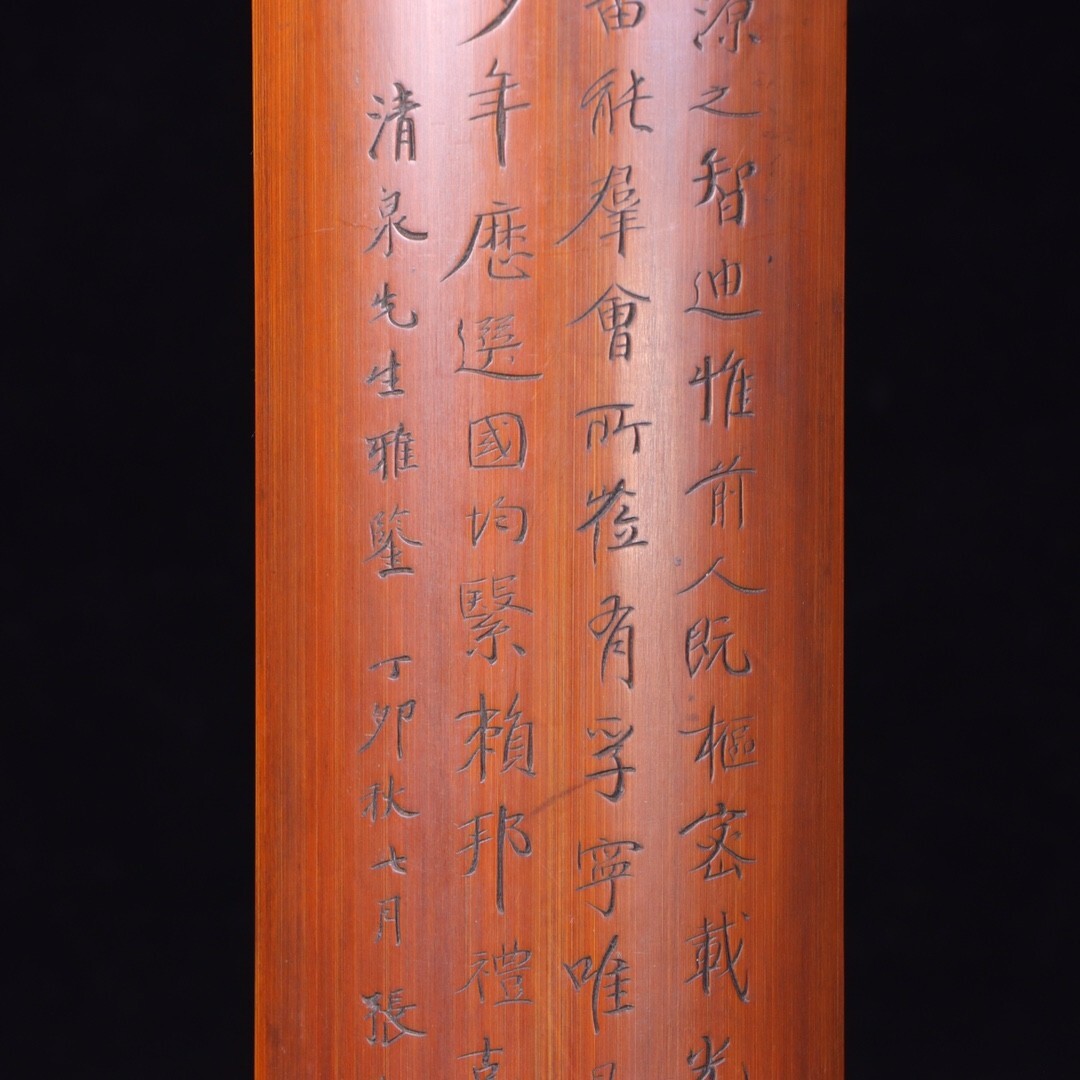 源之智迪惟前人既樞密載光
能羣會所莅有孚寧唯
年歷選國均繄賴邦禮
清泉先生雅鑒 丁卯秋七月張